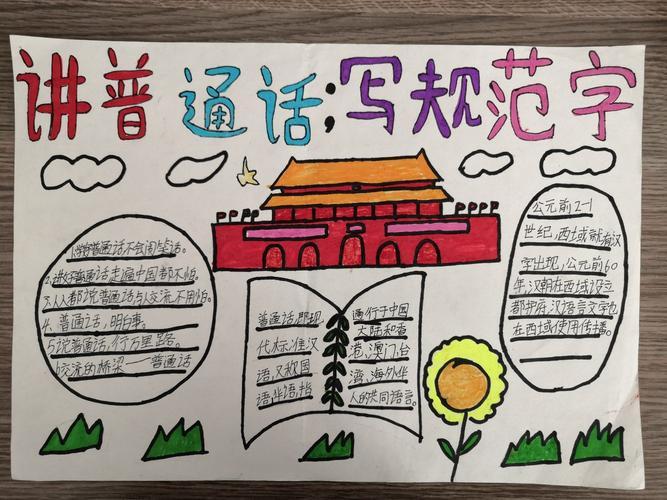 讲普通话;写规范字
1.学好普通话不会闹笑话。
2.讲好普通话走遍中国都不怕。
3.人人都说普通话与人交流不用怕。
4、普通话,明白事。
5.说普通话,行万里路。
6交流的桥梁——普通话
普通话,即现
代标准汉
语,又叔国
语,华语,指
通行于中国
大陆和香
港,澳门,台
湾,海外华
人的共同语言。
公元前2-1
世纪,西域就有汉
字出现,公元前60
年汉朝在西域设立
都护府,汉语言文字也
在西域使用传播。